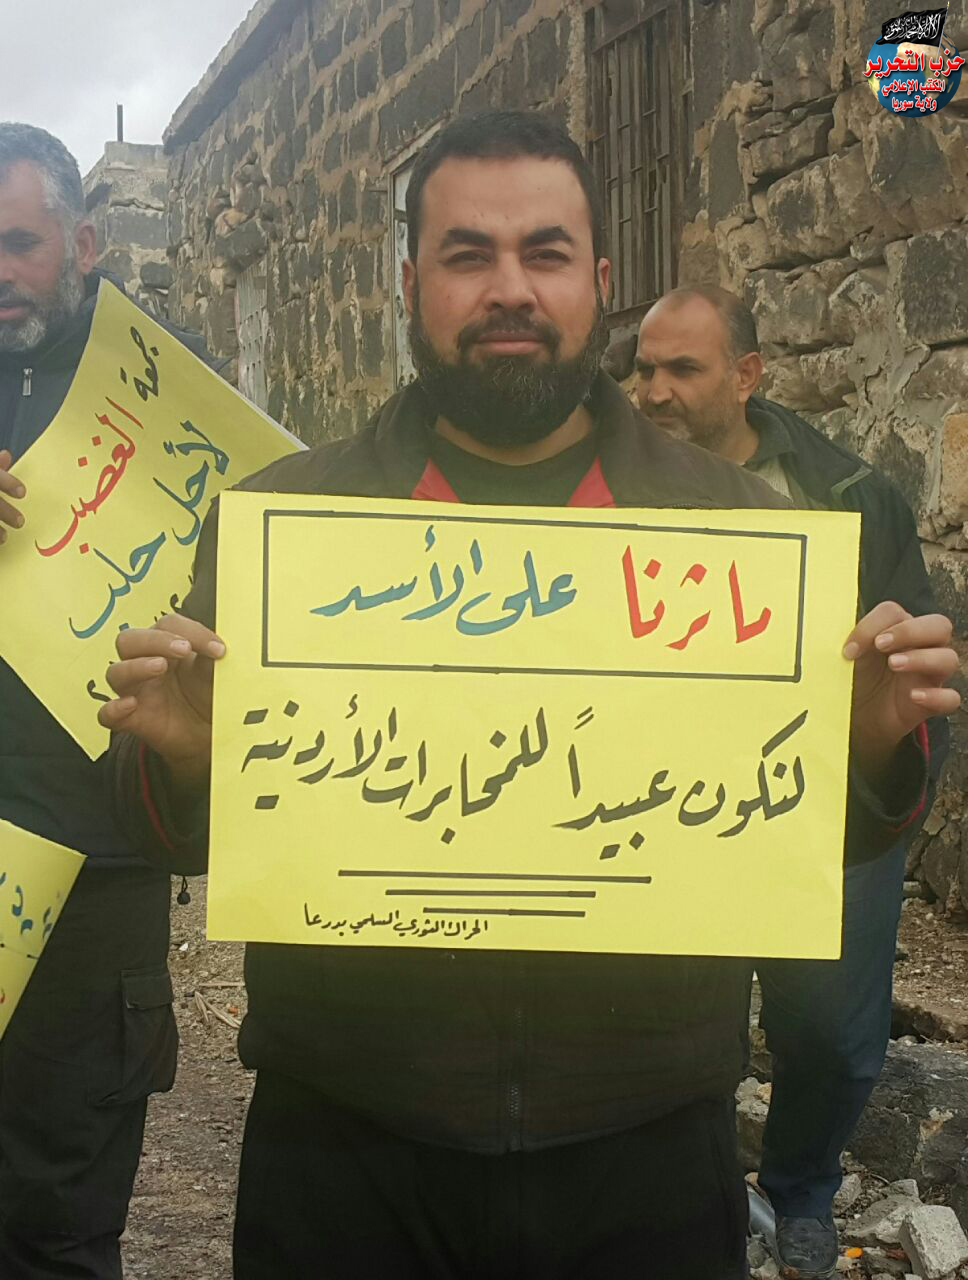 حزب التحرير
المكتب الإعلامي
ولاية سوريا
جمعة
الغضب
لأجل حلب
ما ثرنا على الأسد
لنكون عبيداً للمخابرات الأردنية
الحراك الثوري السلمي بدرعا